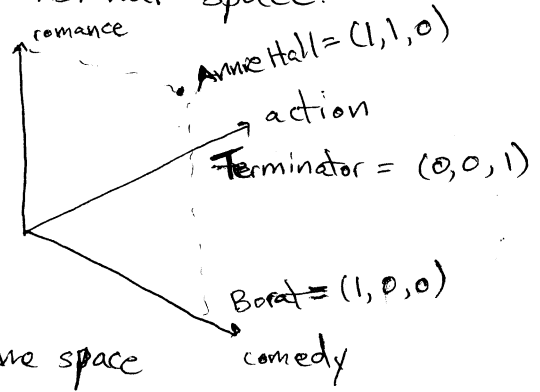 space.
romance
Annie Hall = (1,1,0)
action
Terminator = (0,0,1)
Borat = (1,0,0)
space
comedy